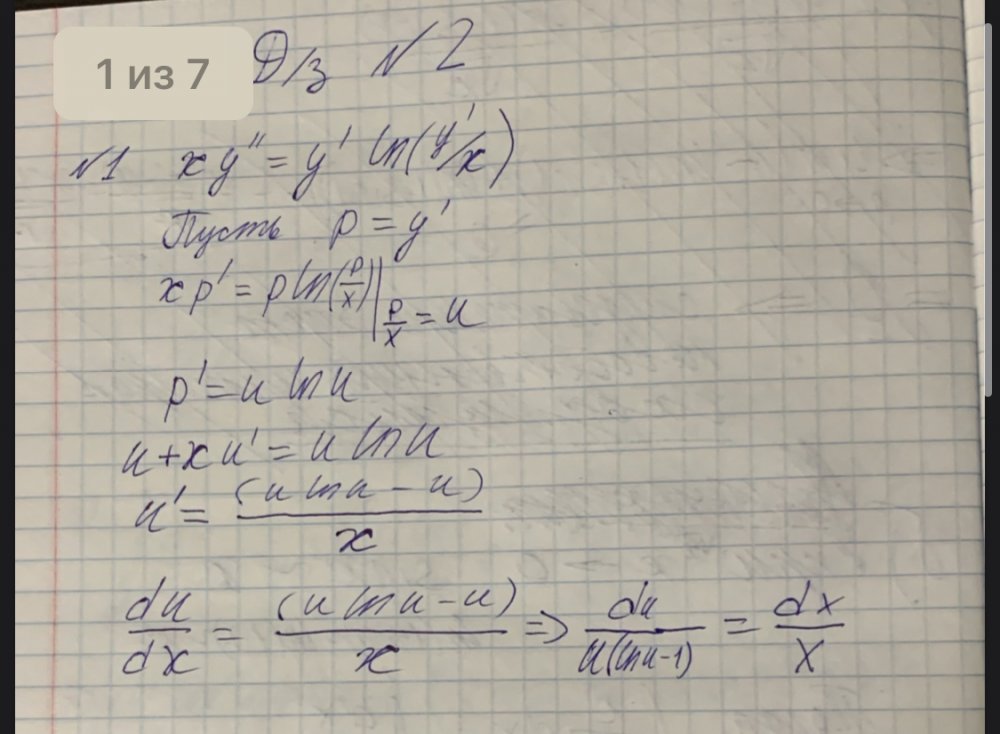 1 из 7
Д/з №2
№1 xy'' = y' ln(y'/x)
Пусть p = y'
xp' = p ln(p/x) | p/x = u
p' = u ln u
u + xu' = u ln u
u' = (u ln u - u) / x
du/dx = (u ln u - u) / x => du / u(ln u - 1) = dx / x